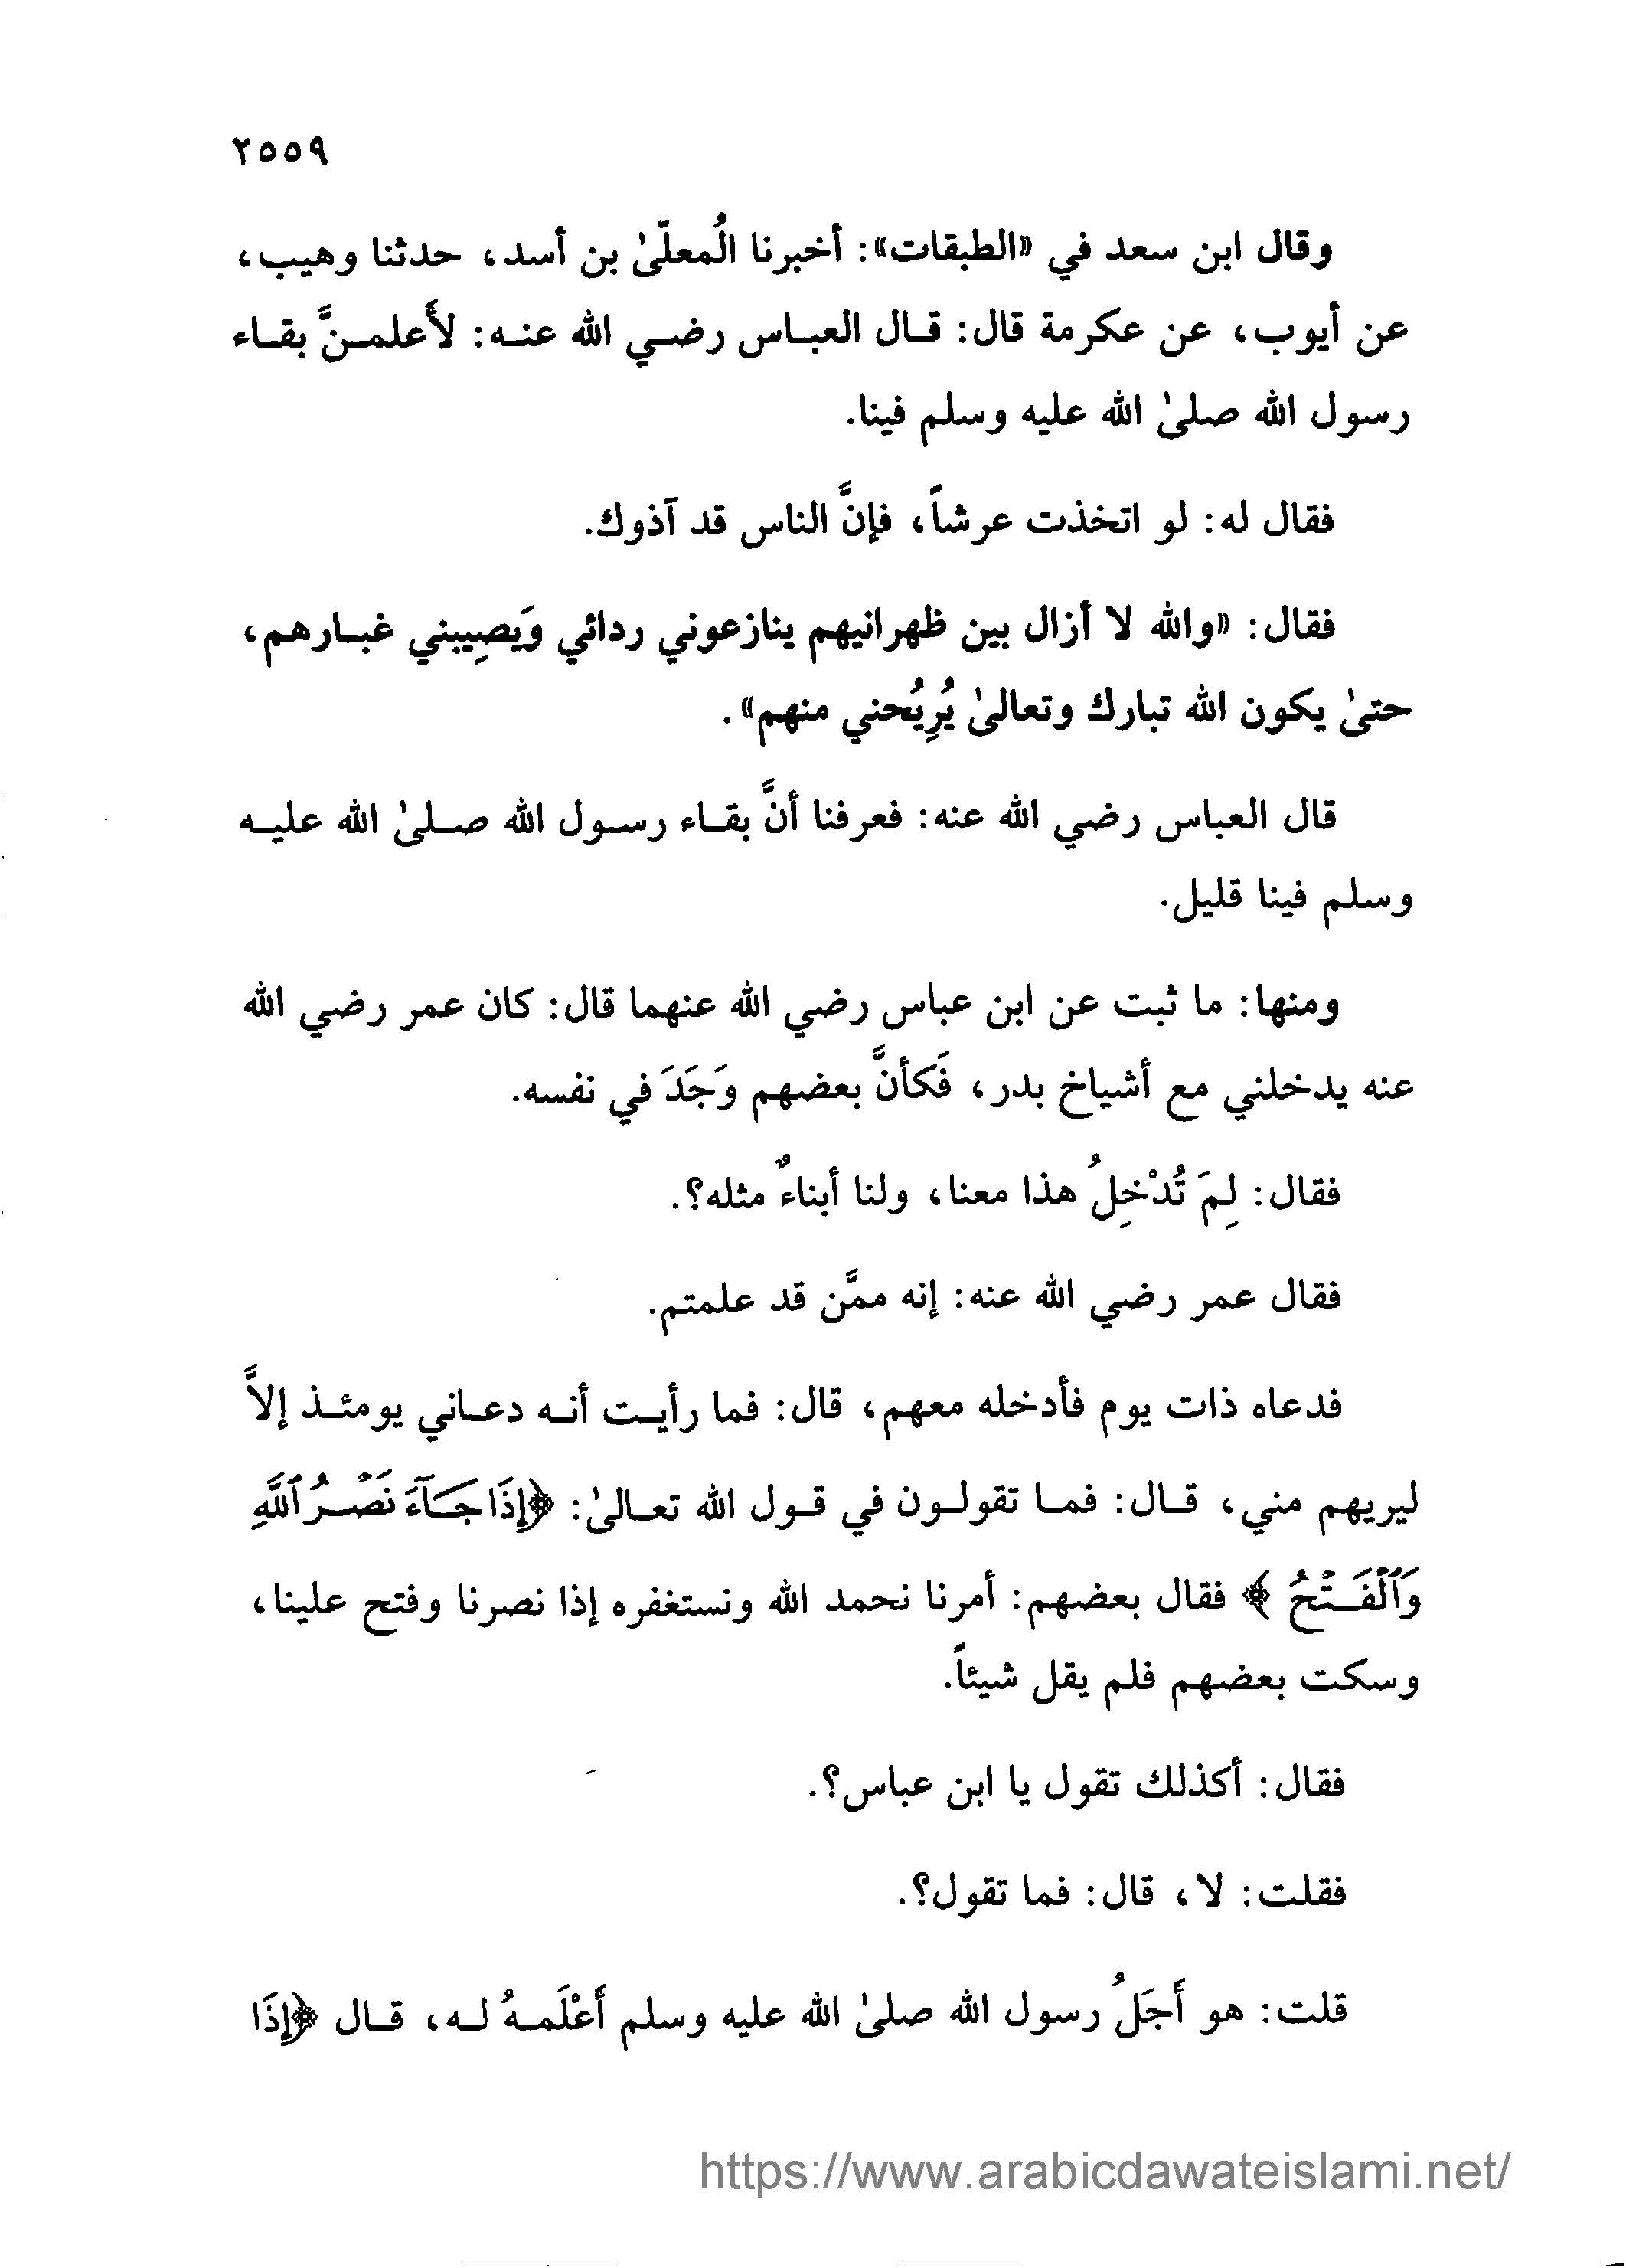 ٢٥٥٩
وقال ابن سعد في «الطبقات»: أخبرنا الُمعلّىٰ بن أسد، حدثنا وهيب،
عن أيوب، عن عكرمة قال: قـال العبـاس رضـي الله عنـه: لأَعلمـنَّ بقـاء
رسول الله صلىٰ الله عليه وسلم فينا.
فقال له: لو اتخذت عرشاً، فإنَّ الناس قد آذوك.
فقال: «والله لا أزال بين ظهرانيهم ينازعوني ردائي وَيصِيبني غبـارهم،
حتىٰ يكون الله تبارك وتعالىٰ يُرِيُحني منهم».
قال العباس رضي الله عنه: فعرفنا أنَّ بقـاء رسـول الله صـلىٰ الله عليـه
وسلم فينا قليل.
ومنها: ما ثبت عن ابن عباس رضي الله عنهما قال: كان عمر رضي الله
عنه يدخلني مع أشياخ بدر، فَكأنَّ بعضهم وَجَدَ في نفسه.
فقال: لِمَ تُدْخِلُ هذا معنا، ولنا أبناءٌ مثله؟.
فقال عمر رضي الله عنه: إنه ممَّن قد علمتم.
فدعاه ذات يوم فأدخله معهم، قال: فما رأيـت أنـه دعـاني يومئـذ إلاَّ
ليريهم مني، قـال: فمـا تقولـون في قـول الله تعـالىٰ: ﴿إِذَا جَـآءَ نَصْـرُ ٱللَّهِ
وَٱلْفَـتْحُ ﴾ فقال بعضهم: أمرنا نحمد الله ونستغفره إذا نصرنا وفتح علينا،
وسكت بعضهم فلم يقل شيئاً.
فقال: أكذلك تقول يا ابن عباس؟.
فقلت: لا، قال: فما تقول؟.
قلت: هو أَجَلُ رسول الله صلىٰ الله عليه وسلم أَعْلَمـهُ لـه، قـال ﴿إِذَا
https://www.arabicdawateislami.net/